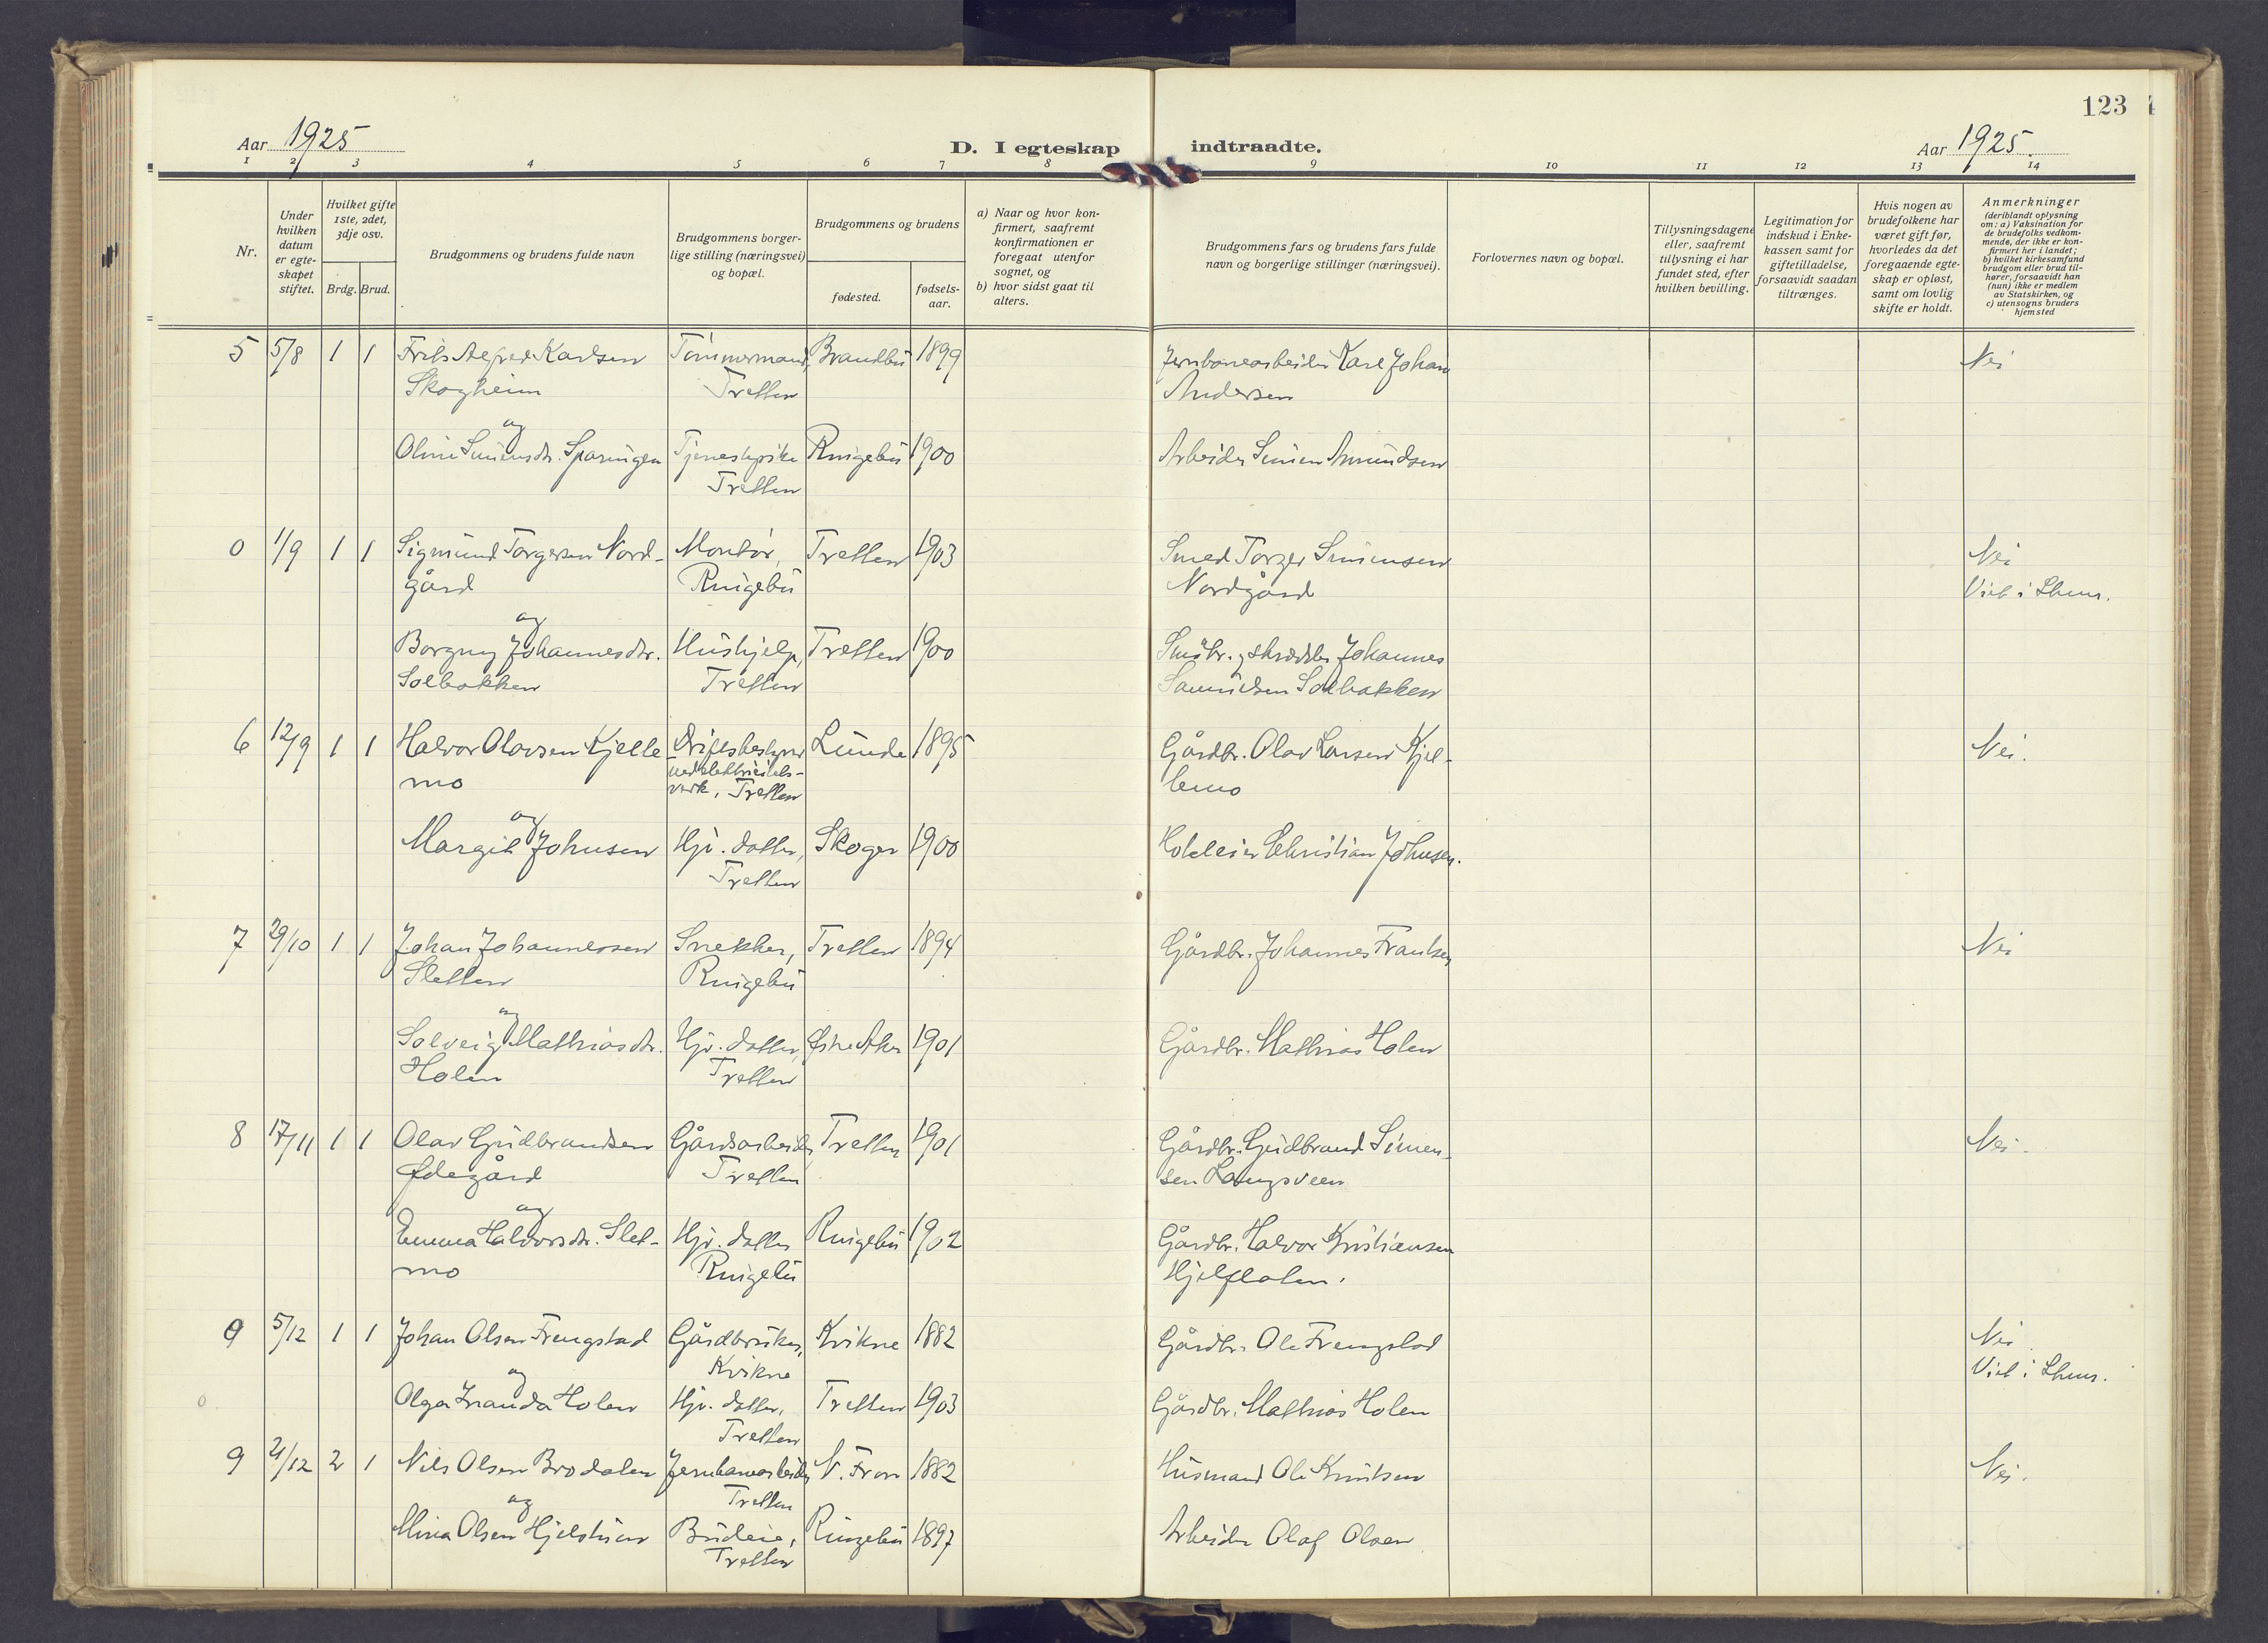 123
Aar 1925
D. I egteskap indtraadte.
Aar 1925.
1 2 3 4 5 6 7 8 9 10 11 12 13 14
Nr.
Under hvilken datum er egte-skapet stiftet.
Hvilket gifte 1ste, 2det, 3dje osv.
Brdg. Brud.
Brudgommens og brudens fulde navn
Brudgommens borger-
lige stilling (næringsvei)
og bopæl.
Brudgommens og brudens
fødested.
fødsels-
aar.
a) Naar og hvor kon-
firmert, saafremt
konfirmationen er
foregaat utenfor
sognet, og
b) hvor sidst gaat til
alters.
Brudgommens fars og brudens fars fulde
navn og borgerlige stillinger (næringsvei).
Forlovernes navn og bopæl.
Tillysningsdagene
eller, saafremt
tillysning ei har
fundet sted, efter
hvilken bevilling.
Legitimation for
indskud i Enke-
kassen samt for
giftetilladelse,
forsaavidt saadan
tiltrænges.
Hvis nogen av
brudefolkene har
været gift før,
hvorledes da det
foregaaende egte-
skap er opløst,
samt om lovlig
skifte er holdt.
Anmerkninger
(deriblandt oplysning
om: a) Vaksination for
de brudefolks vedkom-
mende, der ikke er kon-
firmert her i landet;
b) hvilket kirkesamfund
brudgom eller brud til-
hører, forsaavidt han
(hun) ikke er medlem
av Statskirken, og
c) utensogns bruders
hjemsted
5 5/8 1 1 Frits Alfred Karlsen Tømmermand, Brandbu 1899 Jernbanearbeider Karl Johan Nei
Skogheim Tretten Andersen
og
Oline Simensdtr. Sparingen Tjenestepike Ringebu 1900 Arbeider Simen Amundsen
Tretten
0 1/9 1 1 Sigmund Torgersen Nord- Montør, Tretten 1903 Smed Torger Simensen Nei
gård Ringebu Nordgård Viet i Lhmr.
og
Borgny Johannesdtr. Hushjelp, Tretten 1900 Småbr. og skrædder Johannes
Solbakken Tretten Samuelsen Solbakken
6 12/9 1 1 Halvor Olavsen Kjelle Driftsbestyrer Lunde 1895 Gårdbr. Olav Larsen Kjel- Nei.
mo ved elektrisitets- lemo
verk, Tretten
og
Margit Johnsen Hjv. datter, Skoger 1900 Hoteleier Christian Johnsen.
Tretten
7 29/10 1 1 Johan Johannessen Snekker, Tretten 1894 Gårdbr. Johannes Frantsen Nei
Sletten Ringebu
og
Solveig Mathiasdtr. Hjv. datter, Østre Aker 1901 Gårdbr. Mathias Holen
Holen Tretten
8 17/11 1 1 Olav Gudbrandsen Gårdsarbeider Tretten 1901 Gårdbr. Gudbrand Simen- Nei.
Ødegård Tretten sen Langsveen
og
Emma Halvorsdtr. Slet- Hjv. datter Ringebu 1902 Gårdbr. Halvor Kristiansen
mo Ringebu
9 5/12 1 1 Johan Olsen Frengstad Gårdbruker, Kvikne 1882 Gårdbr. Ole Frengstad Nei
og Kvikne Viet i Lhmr.
Olga Holen Hjv. datter, Tretten 1903 Gårdbr. Mathias Holen
Tretten
9 /12 2 1 Nils Olsen Brodalen Jernbanearbeider N. Fron 1882 Husmand Ole Knutsen Nei.
og Tretten
Mina Olsen Budeie, Ringebu 1897 Arbeider Olaf Olsen
Tretten